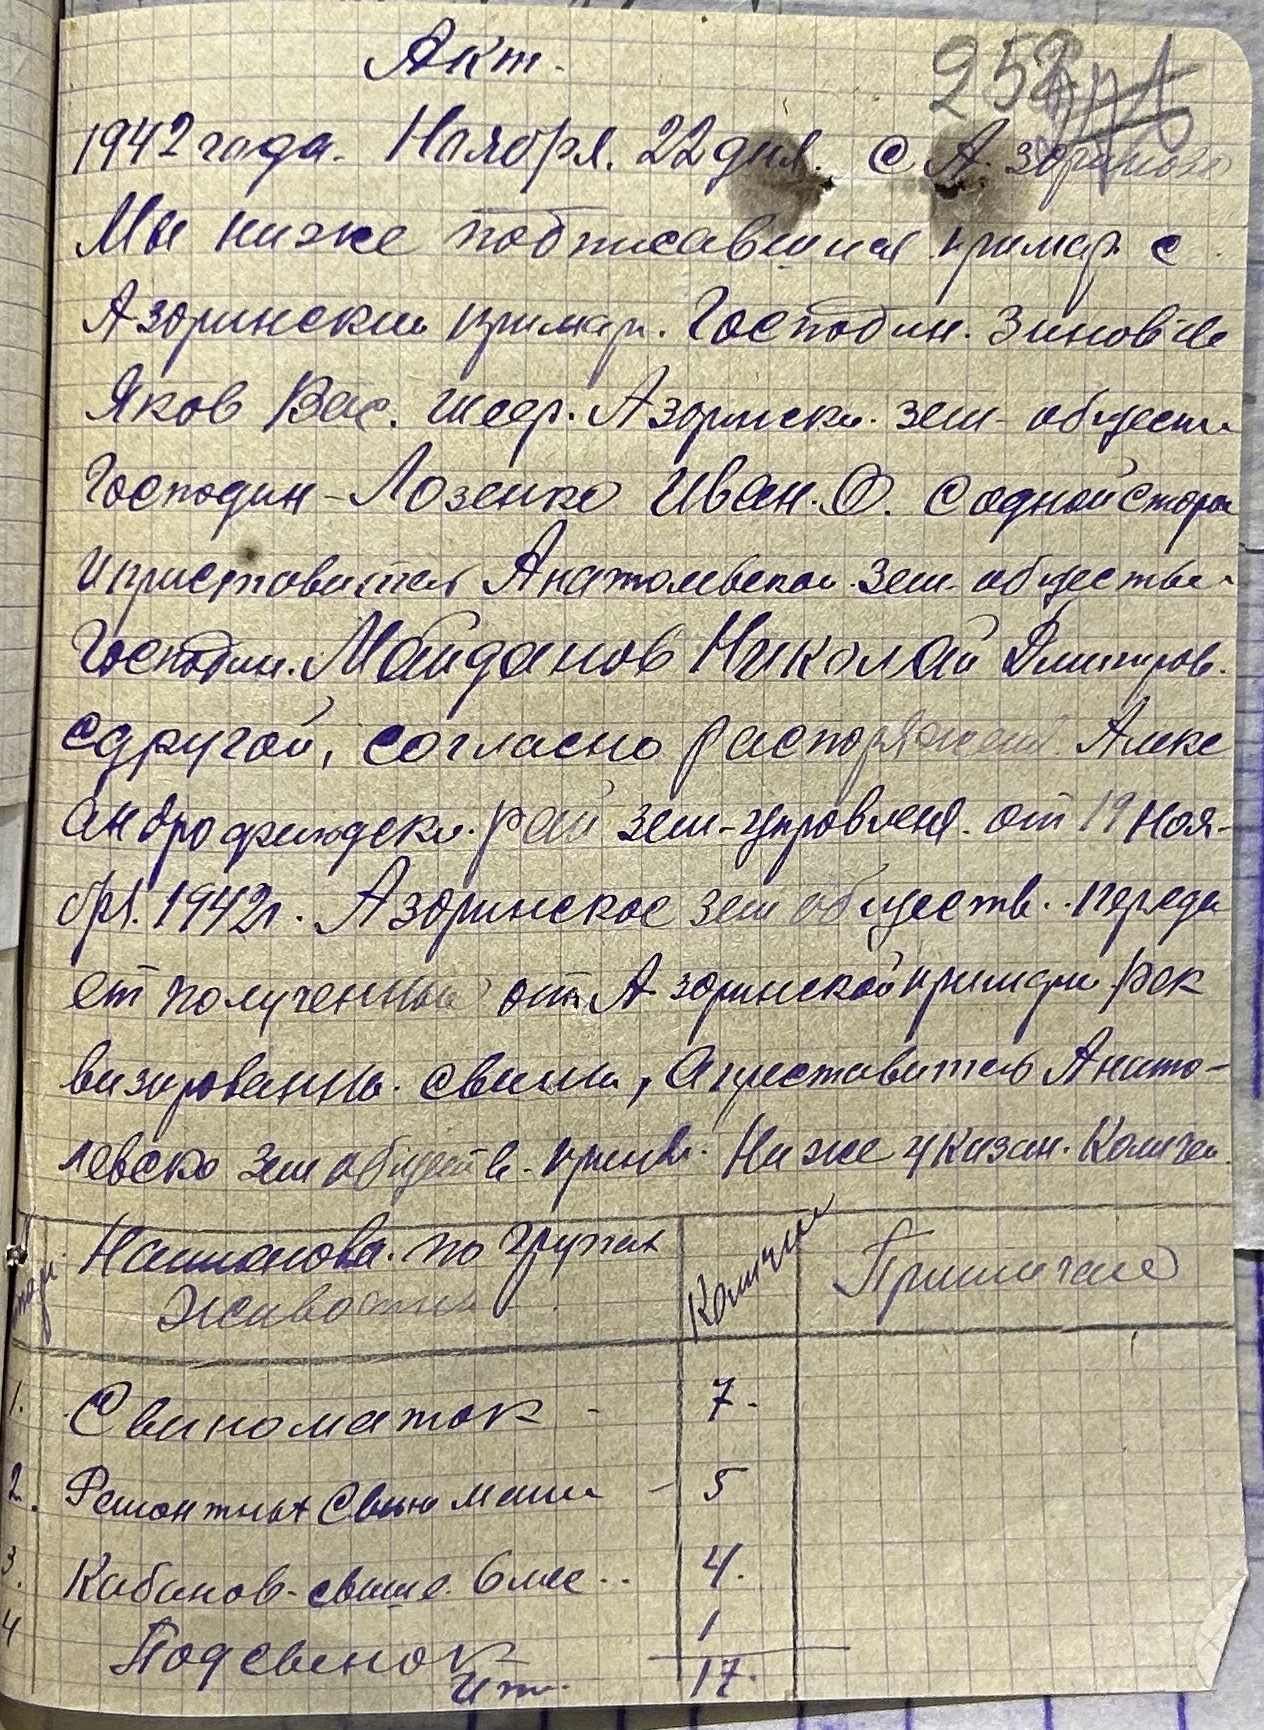 Акт.
252
1942 года. Ноября. 22 дня. с Азориново
Мы ниже подписавшиеся примар с
Азоринский примар. Господин. Зиновьев
Яков Вас. Шеф. Азоринско. зем- обществ
Господин - Лозенко Иван. Ф. с одной сторон
и приставитель Анатольевской зем- обществ
Господин. Майданов Николай Дмитров.
с другой, согласно распоряжения Алекс
андрофельдск. рай зем-управлен. от 19 Ноя-
бря. 1942г. Азоринское зем обществ.. переда
ет полученный от Азоринской примари рек
визированы. свини, а приставитель Анато-
левско зем обществ- приня. Ниже указан. Количес.
Наиманова. по групах Количес Примичане
Животных
1. Свиноматок - 7.
2. Ремонтных Свино мати - 5
3. Кабанов- свыше. 6 мес.. 4.
4 Подсвенок 1
Ит. 17.